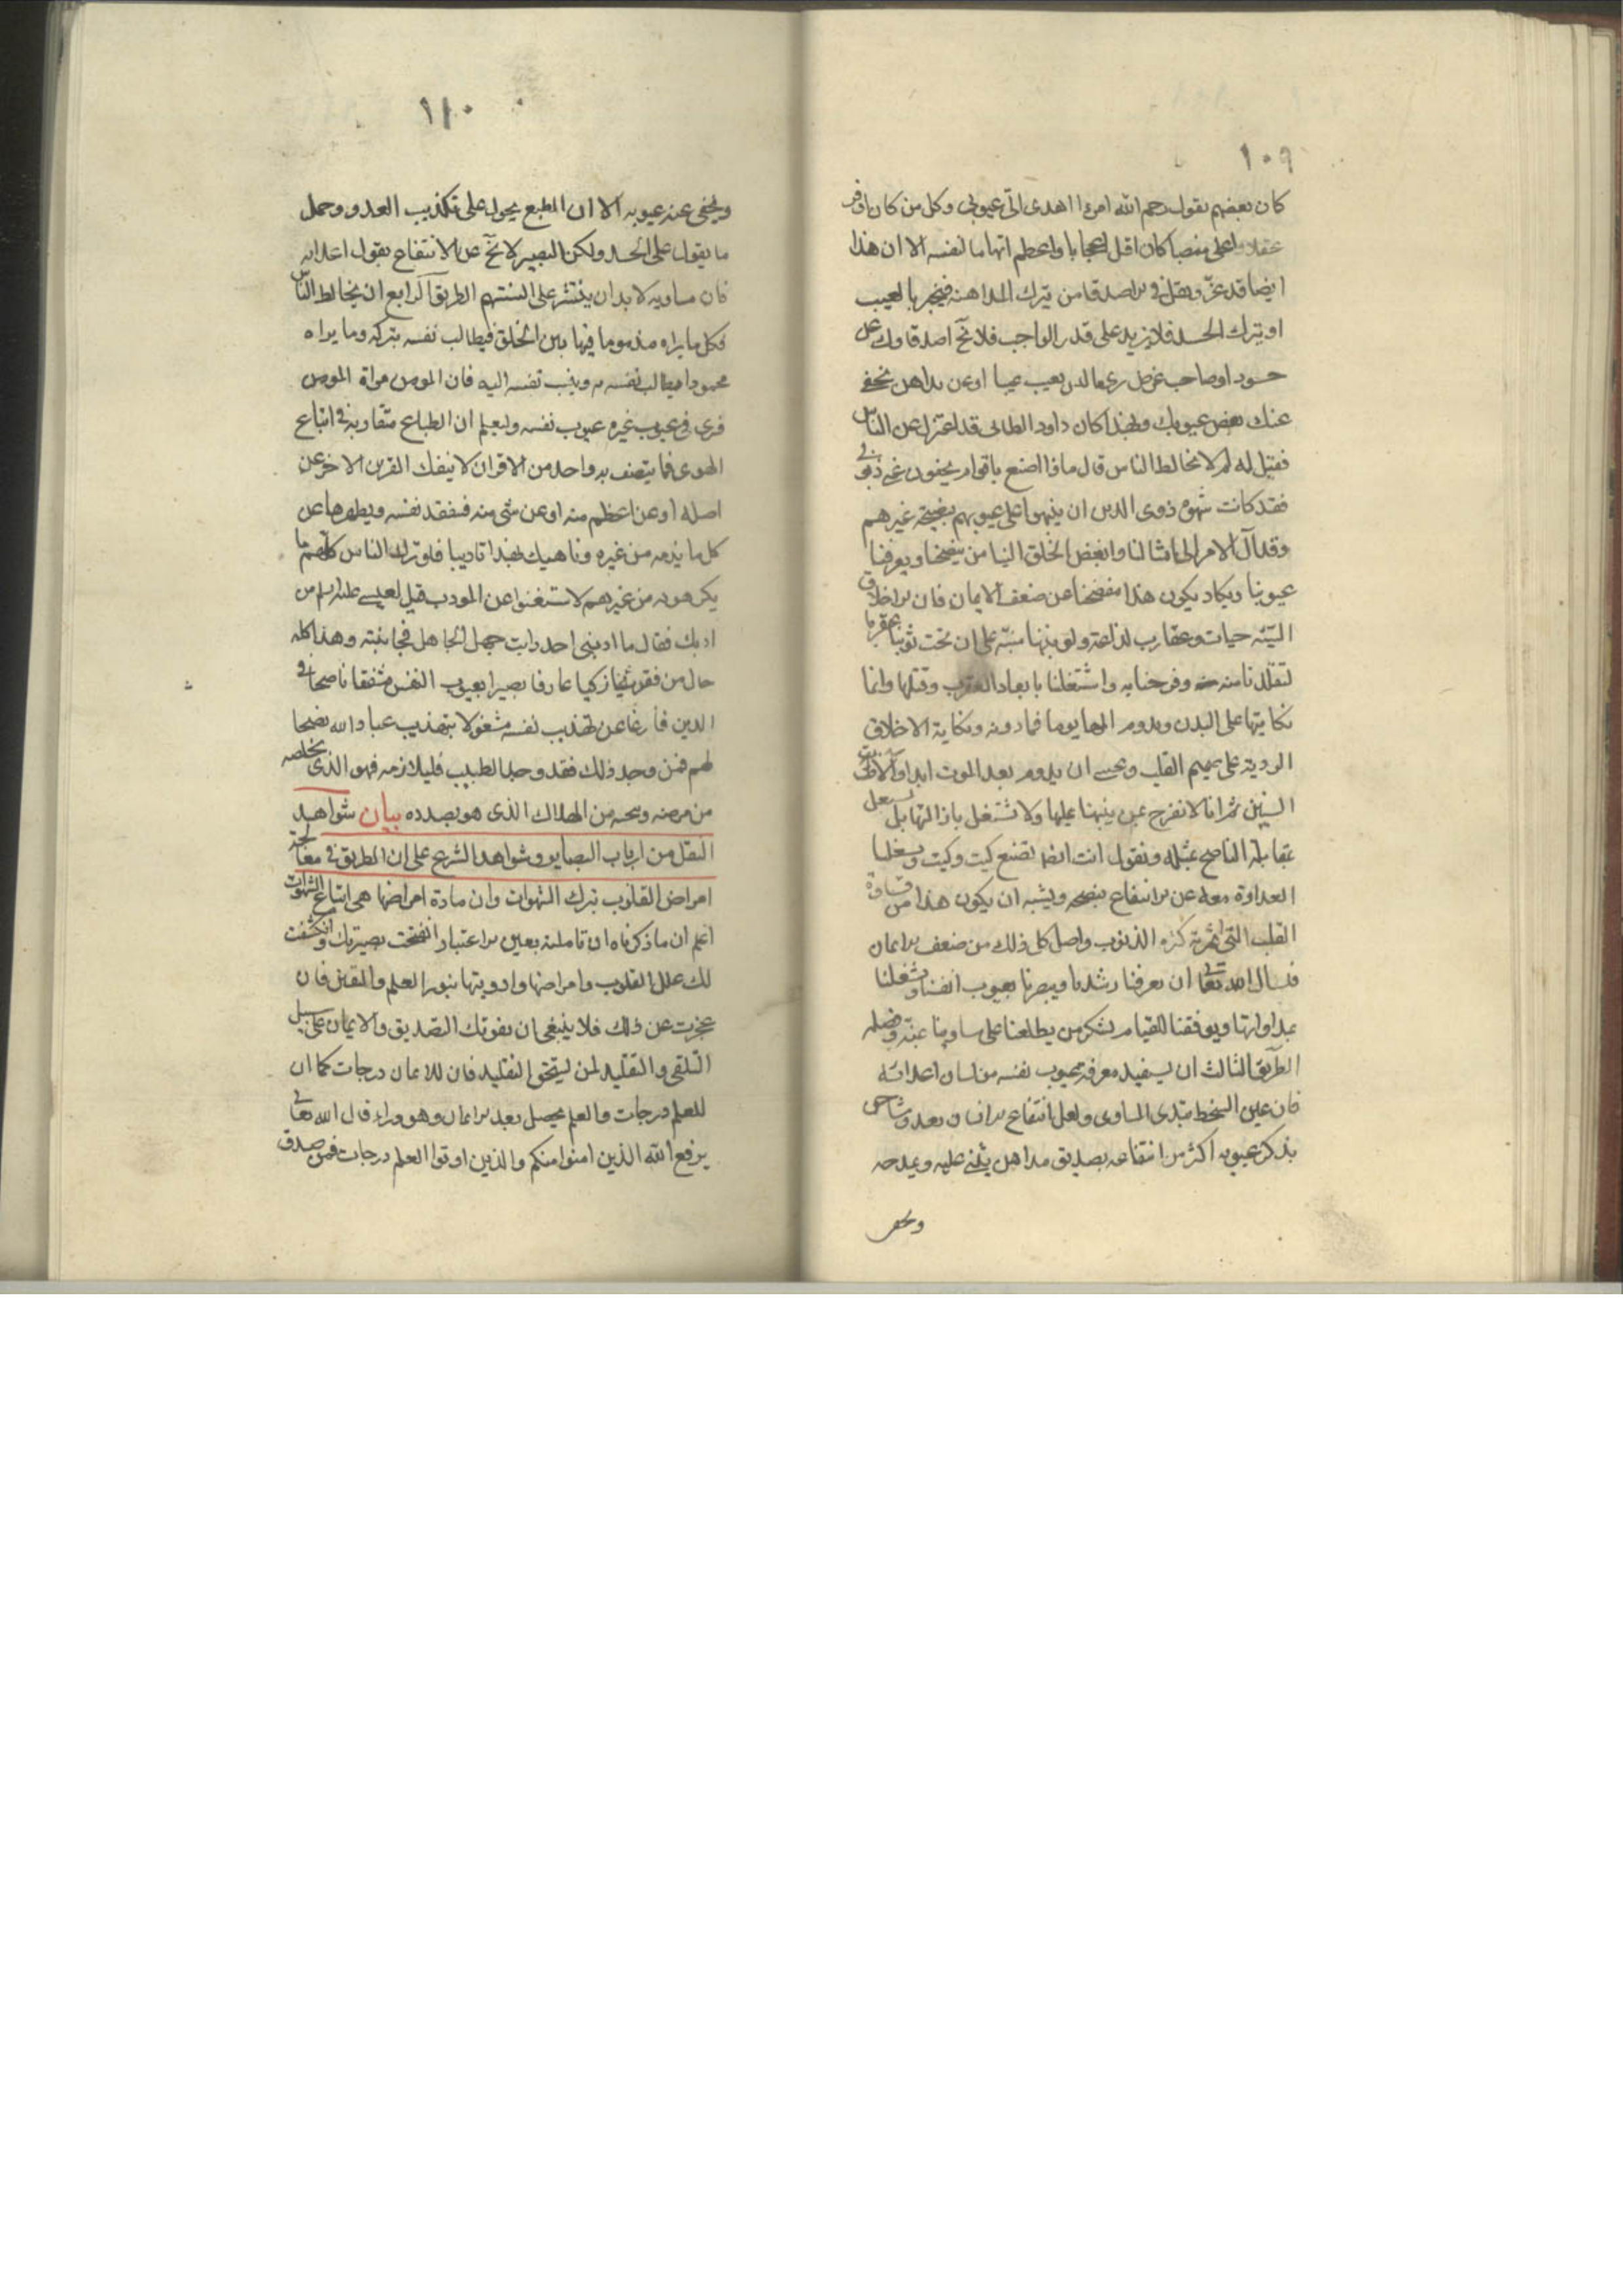 ١٠٩
كان بعضهم يقول رحم الله امرءا اهدى الىّ عيوبى وكل من كان اوفر
عقلا واعلى منصبا كان اقل اعجابا واعظم اتهاما لنفسه الا ان هذا
ايضا قد عزّ وقل فى الاصدقا من يترك المداهنة فيخبر بالعيب
او يترك الحسد فلا يزيد على قدر الواجب فلا تخ اصدقاوك عن
حسود او صاحب غرض يرى ما ليس بعيب عيبا او عن مداهن يخفى
عنك بعض عيوبك ولهذا كان داود الطائى قد اعتزل عن الناس
فقيل له لم لا تخالط الناس قال ماذا اصنع باقوام يخفون عنى ذنوبى
فقد كانت شهوة ذوى الدين ان ينبهوا على عيوبهم بنصيحة غيرهم
وقد آل الامر الى امثالنا وابغض الخلق الينا من ينصحنا ويعرفنا
عيوبنا ويكاد يكون هذا مفصحا عن ضعف الايمان فان الاخلاق
السيّئة حيات وعقارب لداغة ولو نبهنا منبّه على ان تحت ثوبنا عقربا
لتقلدنا منه منة وفرحنا به واشتغلنا بابعاد العقرب وقتلها وانما
نكايتها على البدن ويدوم المها يوما فما دونه ونكاية الاخلاق
الردية على صميم القلب وعسى ان يدوم بعد الموت ابدا او آلافا من
السنين ثم انا لا نفرح بمن ينبهنا عليها ولا نشتغل بازالتها بل نشتغل
بمقابلة الناصح بمثله ونقول انت ايضا تصنع كيت وكيت ويشغلنا
العداوة معه عن الانتفاع بنصحه ويشبه ان يكون هذا من قساوة
القلب التى اثمرته كثرة الذنوب واصل كل ذلك من ضعف الايمان
فنسال الله تعالى ان يعرفنا رشدنا ويبصرنا بعيوب انفسنا ويشغلنا
بمداواتها ويوفقنا للقيام بشكر من يطلعنا على مساوينا بمنّه وفضله
الطريق الثالث ان يستفيد معرفة عيوب نفسه من لسان اعدائه
فان عين السخط تبدى المساوى ولعل انتفاع الانسان بعدو مشاحن
يذكر عيوبه اكثر من انتفاعه بصديق مداهن يثنى عليه ويمدحه
ويخفى
١١٠
ويخفى عنه عيوبه الا ان الطبع يحول على تكذيب العدو وحمل
ما يقول على الحسد ولكن البصير لا يخ عن الانتفاع بقول اعدائه
فان مساويه لا بد ان ينتشر على السنتهم الطريق الرابع ان يخالط الناس
فكل ما يراه مذموما فيما بين الخلق فيطالب نفسه بتركه وما يراه
محمودا فيطالب نفسه به وينسب نفسه اليه فان المومن مراة المومن
فيرى فى عيوب غيره عيوب نفسه وليعلم ان الطباع متقاربة فى اتباع
الهوى فما يتصف به واحد من الاقران لا ينفك القرن الاخر عن
اصله او عن اعظم منه او عن شى منه فيتفقد نفسه ويطهرها عن
كل ما يذمه من غيره وناهيك بهذا تاديبا فلو ترك الناس كلهم ما
يكرهونه من غيرهم لاستغنوا عن المودب قيل لعيسى عليه السلام من
ادبك فقال ما ادبنى احد رايت جهل الجاهل فجانبته وهذا كله
حال من فقد شيخا زكيا عارفا بصيرا بعيوب النفس مشفقا ناصحا فى
الدين فارغا عن تهذيب نفسه مشغولا بتهذيب عباد الله نصحا
لهم فمن وجد ذلك فقد وجد الطبيب فليلازمه فهو الذى يخلصه
من مرضه وينجيه من الهلاك الذى هو بصدده بيان شواهد
النقل من ارباب البصاير وشواهد الشرع على ان الطريق فى معالجة
امراض القلوب بترك الشهوات وان مادة امراضها هى اتباع الشهوات
اعلم ان ما ذكرناه ان تاملته بعين الاعتبار انفتحت بصيرتك وانكشفت
لك علل القلوب وامراضها وادويتها بنور العلم واليقين فان
عجزت عن ذلك فلا ينبغى ان يفوتك التصديق والايمان على سبيل
التلقى والتقليد لمن يستحق التقليد فان للايمان درجات كما ان
للعلم درجات والعلم يحصل بعد الايمان وهو وراءه قال الله تعالى
يرفع الله الذين امنوا منكم والذين اوتوا العلم درجات فمن صدق